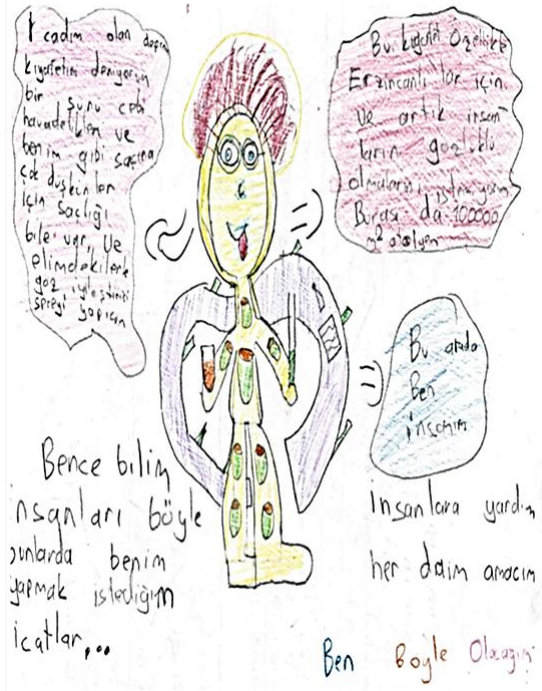 İcadım olan deprem
kıyafetim deniyorum
bir sürü cebi
havadelikleri ve
benim gibi saçına
çok düşkünler
için saçlığı
bile var, Ve
elimdekilerle
göz iyileştirici
spreyi yapıcam
Bu kıyafet özellikle
Erzincanlılar için
Ve artık insan
ların gözlüklü
olmalarını istemiyorum
Burası da 100000
m² atolyem
Bu arada
Ben
insanım
Bence bilim
insanları böyle
bunlarda benim
yapmak istediğim
icatlar,..
insanlara yardım
her daim amacım
Ben Böyle Olacağım